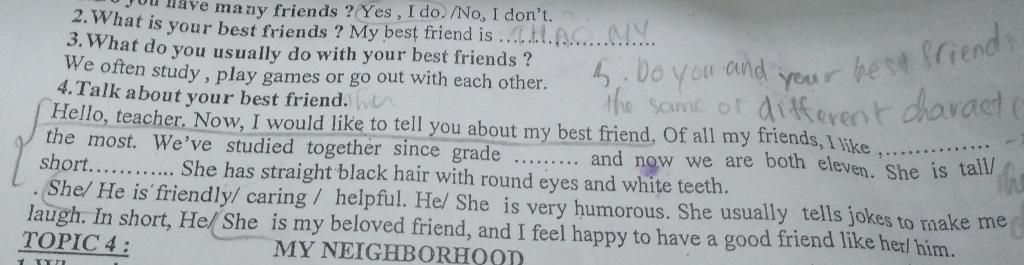 you have many friends ? Yes , I do. /No, I don't.
2. What is your best friends ? My best friend is ...THAO MY...
3. What do you usually do with your best friends ?
We often study , play games or go out with each other.
5. Do you and your best friends
the same or different characte
4. Talk about your best friend.
Hello, teacher. Now, I would like to tell you about my best friend. Of all my friends, I like ...............
the most. We've studied together since grade ......... and now we are both eleven. She is tall/
short............. She has straight black hair with round eyes and white teeth.
. She/ He is friendly/ caring / helpful. He/ She is very humorous. She usually tells jokes to make me
laugh. In short, He/ She is my beloved friend, and I feel happy to have a good friend like her/ him.
TOPIC 4 : MY NEIGHBORHOOD